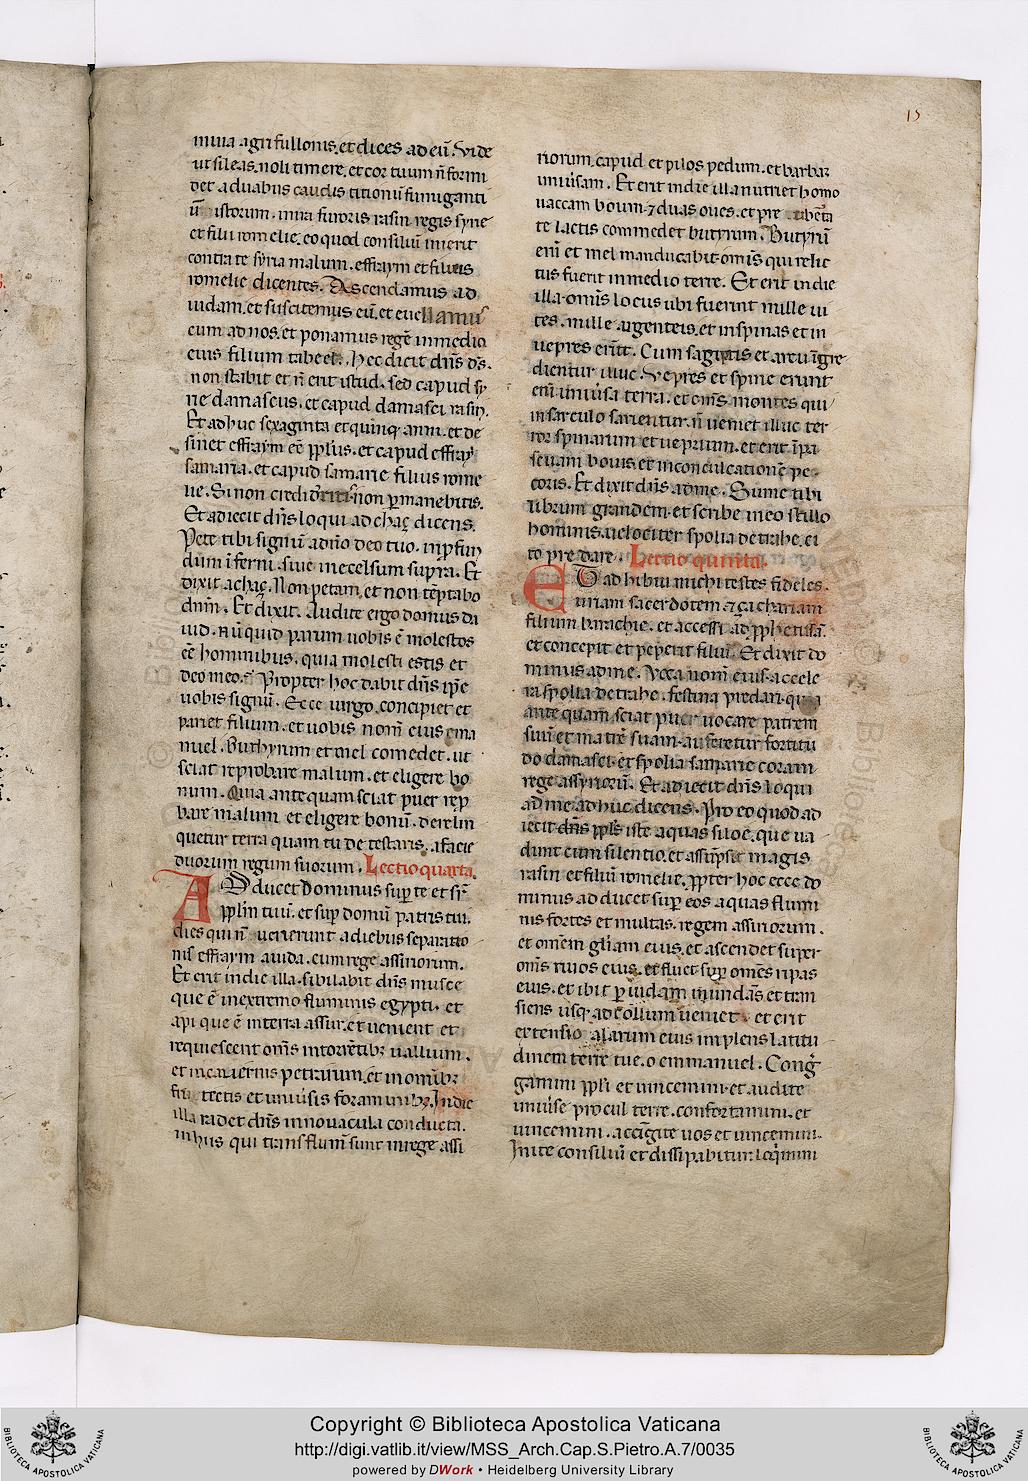 15
mita agri fullonis. et dices ad eū. Vide
ut sileas. noli timere. et cor tuum ñ formi
det a duabus caudis titionū fumiganti
ū istorum. in ira furoris rasin regis syrie
et filii romelie. eo quod consiliū inierit
contra te syria malum. effraym et filius
romelie dicentes. Ascendamus ad
iudam. et suscitemus eū. et evellamus
eum ad nos. et ponamus regē in medio
eius filium tabeel. hec dicit dñs d̄s.
non stabit et ñ erit istud. sed capud sy
rie damascus. et capud damasci rasin.
Et adhuc sexaginta et quinq; anni. et de
sinet effraym eē pp̄lus. et capud effraym
samaria. et capud samarie filius rome
lie. Si non credideritis non p̄manebitis.
Et adiecit dñs loqui ad achaç dicens.
Pete tibi signū a dño deo tuo. in p̄fun
dum īferni. sive in excelsum supra. Et
dixit achaç. Non petam. et non tēptabo
dnm̄. Et dixit. Audite ergo domus da
uid. nūquid parum uobis ē molestos
eē hominibus. quia molesti estis et
deo meo. Propter hoc dabit dñs ip̄e
uobis signū. Ecce uirgo concipiet et
pariet filium. et uobis nom̄ eius ema
nuel. Buthyrum et mel comedet. ut
sciat reprobare malum. et eligere bo
num. Quia antequam sciat puer rep̄
bare malum et eligere bonū. derelin
quetur terra quam tu detestaris. a facie
duorum regum suorum. Lectio quarta.
ADducet Dominus sup̄ te et sr̄
pp̄lm tuū. et sup̄ domū patris tui.
dies qui ñ uenerunt a diebus separatio
nis effraym a iuda. cum rege assiriorum.
Et erit in die illa. sibilabit dñs musce
que ē in extremo fluminis egypti. et
api que ē in terra assur. et uenient et
requiescent om̄s in torrētibꝫ uallium.
et in cauernis petrarum. et in om̄ibꝫ
fru tectis et uniuersis foraminibꝫ. In die
illa radet dñs in nouacula conducta.
in hiis qui trans flum̄ sunt in rege assi
riorum. capud et pilos pedum. et barbam
uniūsam. Et erit in die illa nutriet homo
uaccam boum. ⁊ duas oues. et pre ubertate
te lactis commedet butyrum. Butyrū
enī et mel manducabit om̄is qui relic
tus fuerit in medio terre. Et erit in die
illa. omīs locus ubi fuerint mille ui
tes. mille argenteis. et in spinas et in
uepres erūt. Cum sagittis et arcu īgre
dientur illuc. Vepres et spine erunt
enī uniūsa terra. et om̄s montes qui
in sarculo sarientur. ñ ueniet illuc ter
ror spinarum et ueprium. et erit ī pa
scuam bouis et in conculcationē pe
coris. Et dixit dñs ad me. Sume tibi
librum grandem. et scribe in eo stillo
hominis. uelociter spolia detrahe. ci
to predare. Lectio quinta.
ET adhibui michi testes fideles.
uriam sacerdotem ⁊ çachariam
filium barachie. et accessi ad pp̄hetissā.
et concepit et peperit filiū. Et dixit do
minus ad me. Voca nom̄ eius. accele
ra spolia detrahe. festina predari. quia
antequam sciat puer uocare patrem
suū et matrē suam. auferetur fortitu
do damasci. et spolia samarie coram
rege assyriorū. Et adiecit dñs loqui
ad me adhuc dicens. Pro eo quod ab
iecit dñs pp̄ls iste aquas siloē. que ua
dunt cum silentio. et assūpsit magis
rasin et filiū romelie. pp̄ter hoc ecce do
minus adducet sup̄ eos aquas flumi
nis fortes et multas. regem assiriorum.
et omēm gl̄iam eius. et ascendet super
om̄s riuos eius. et fluet sup̄ om̄es ripas
eius. et ibit p̄ iudam inundās et tran
siens usq; ad collum ueniet. et erit
extensio alarum eius implens latitu
dinem terre tue. o emmanuel. Congre
gamini pp̄li et uincemini. et audite
uniuse procul terre. confortamini. et
uincemini. accīgite uos et uincemini.
Inite consiliū et dissipabitur. loq̄mini
Copyright © Biblioteca Apostolica Vaticana
http://digi.vatlib.it/view/MSS_Arch.Cap.S.Pietro.A.7/0035
powered by DWork • Heidelberg University Library
BIBLIOTECA APOSTOLICA VATICANA
BIBLIOTECA APOSTOLICA VATICANA